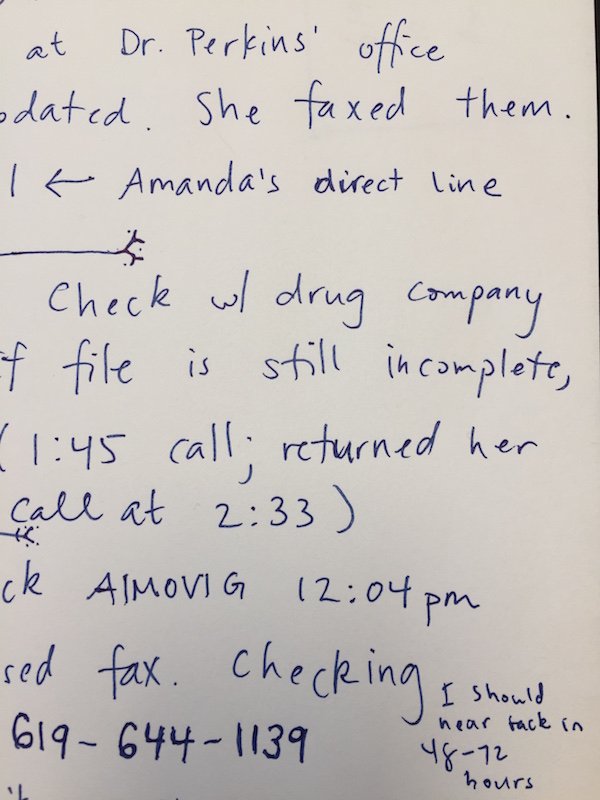 at Dr. Perkins' office
odated. She faxed them.
1 ← Amanda's direct line
Check w/ drug company
if file is still incomplete,
(1:45 call; returned her
call at 2:33)
ck AIMOVIG 12:04 pm
sed fax. Checking
619-644-1139
I should
hear back in
48-72
hours